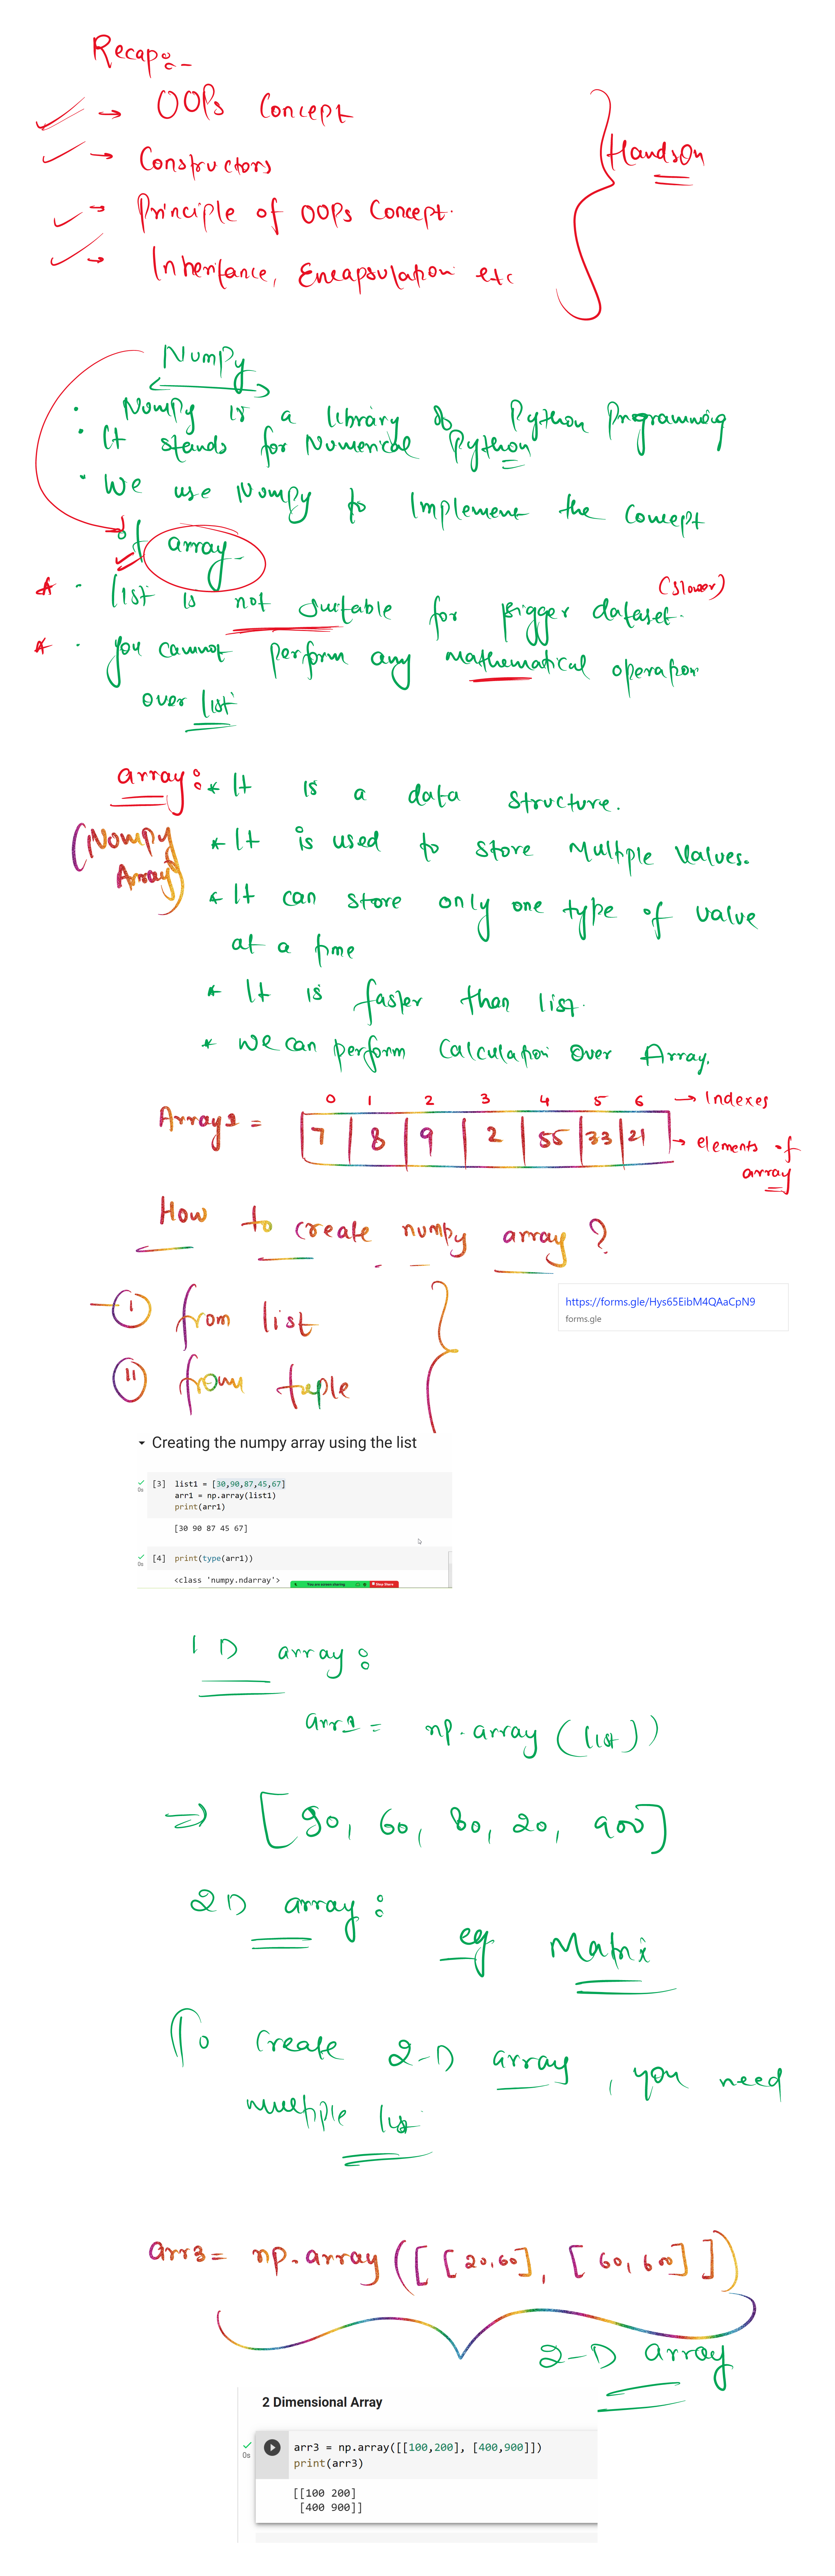 Recap:-
→ OOPs Concept
→ Constructors
HandsOn
→ Principle of OOPs Concept.
→ Inheritance, Encapsulation etc
NumPy
· NumPy is a library of Python Programming
· It stands for Numerical Python
· We use Numpy to Implement the Concept
of array
· list is not suitable for bigger dataset. (slower)
· you cannot perform any mathematical operation
over list
array: * It is a data structure.
(Numpy Array)
* It is used to store Multiple Values.
* It can store only one type of value
at a time
* It is faster than list.
* We can perform Calculation Over Array.
0 1 2 3 4 5 6 → Indexes
Array1 = 7 8 9 2 55 33 21 → elements of
array
How to create numpy array ?
https://forms.gle/Hys65EibM4QAaCpN9
forms.gle
I from list
II from tuple
Creating the numpy array using the list
[3] list1 = [30,90,87,45,67]
0s
arr1 = np.array(list1)
print(arr1)
[30 90 87 45 67]
[4] print(type(arr1))
0s
<class 'numpy.ndarray'>
You are screen sharing
Stop Share
1 D array:
arr1 = np.array (list))
⇒ [90, 60, 80, 20, 900]
2D array:
eg Matrix
To create 2-D array, you need
multiple list
arr3 = np.array([[20,60], [60,600]])
2-D array
2 Dimensional Array
arr3 = np.array([[100,200], [400,900]])
0s
print(arr3)
[[100 200]
[400 900]]